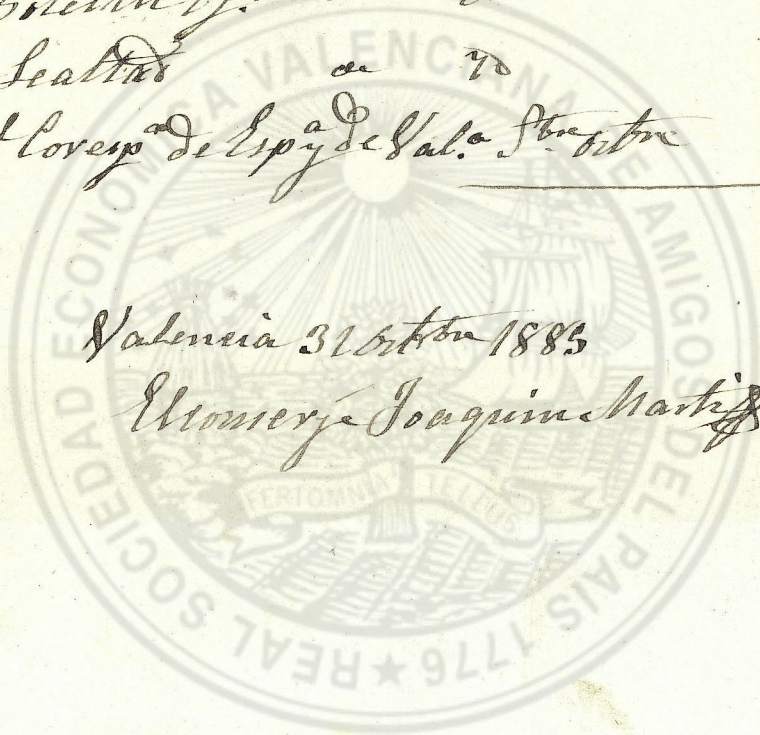 Lealtad de Yd
Corespª de Espª y de Val.ª Sbre Otbre
Valencia 31 Octbre 1885
El conserje Joaquin Marti
REAL SOCIEDAD ECONOMICA VALENCIANA DE AMIGOS DEL PAIS 1776
FERT OMNIA TELLUS